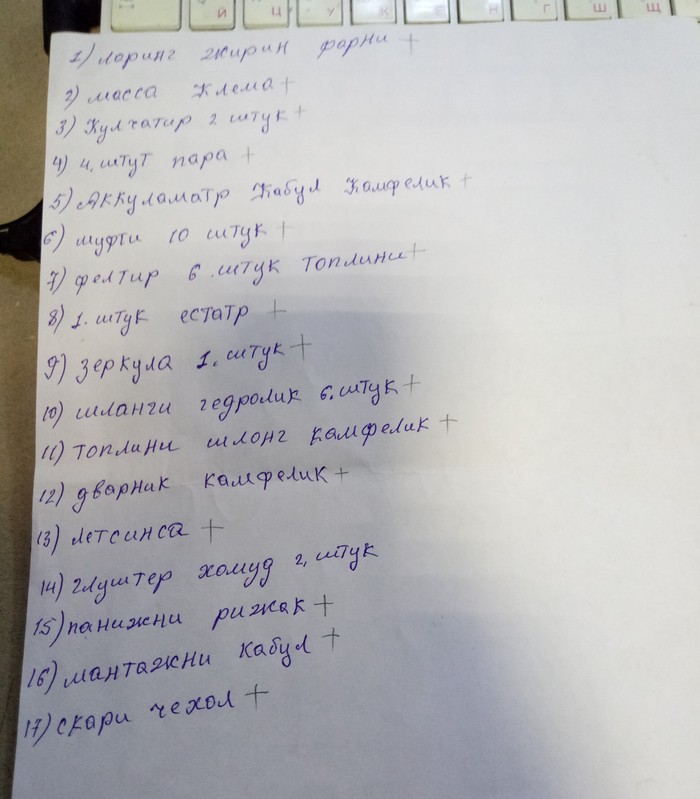 Й Ц У К Е Н Г Ш Щ
1) ларинг жирин фарни +
2) масса клема +
3) Кулчатир 2 штук +
4) 4. штут пара +
5) Аккуламатр Кабул Камфелик +
6) муфти 10 штук +
7) фелтир 6. штук топлини +
8) 1. штук естатр +
9) зеркула 1. штук +
10) шланги гедролик 6. штук +
11) топлини шлонг камфелик +
12) дварник камфелик +
13) летсинса +
14) глуштер хомуд 2, штук
15) панижни рижак +
16) мантажни кабул +
17) скари чехол +